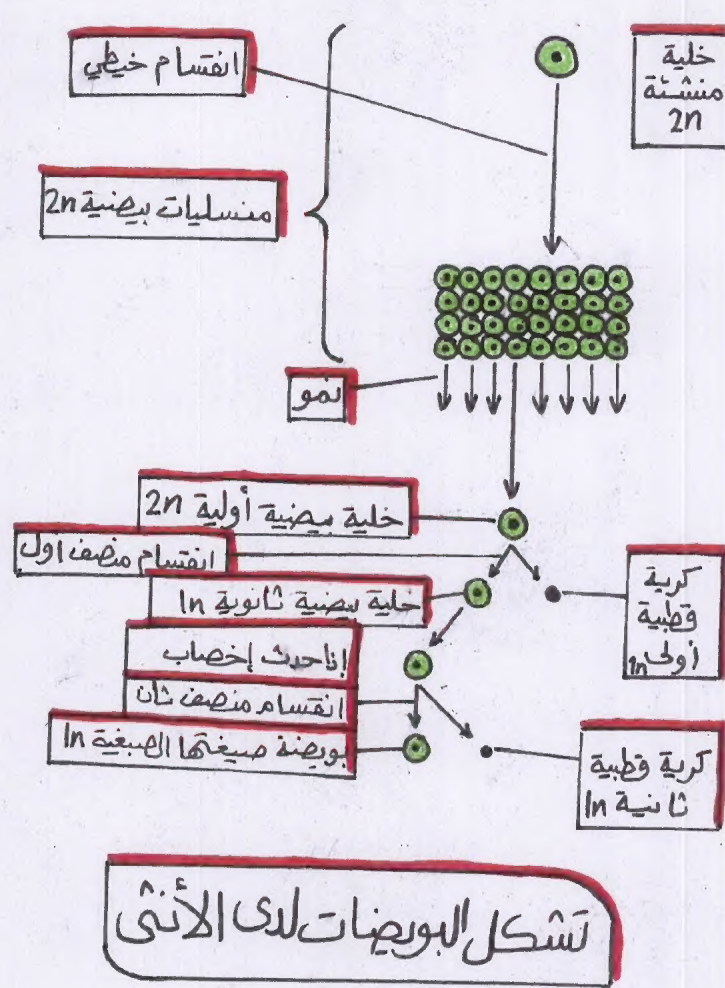 خلية
منشئة
2n
انقسام خيطي
منسليات بيضية 2n
نمو
خلية بيضية أولية 2n
انقسام منصف اول
خلية بيضية ثانوية 1n
كرية
قطبية
أولى 1n
إذا حدث إخصاب
انقسام منصف ثان
بويضة صيغتها الصبغية 1n
كرية قطبية
ثانية 1n
تشكل البويضات لدى الأنثى